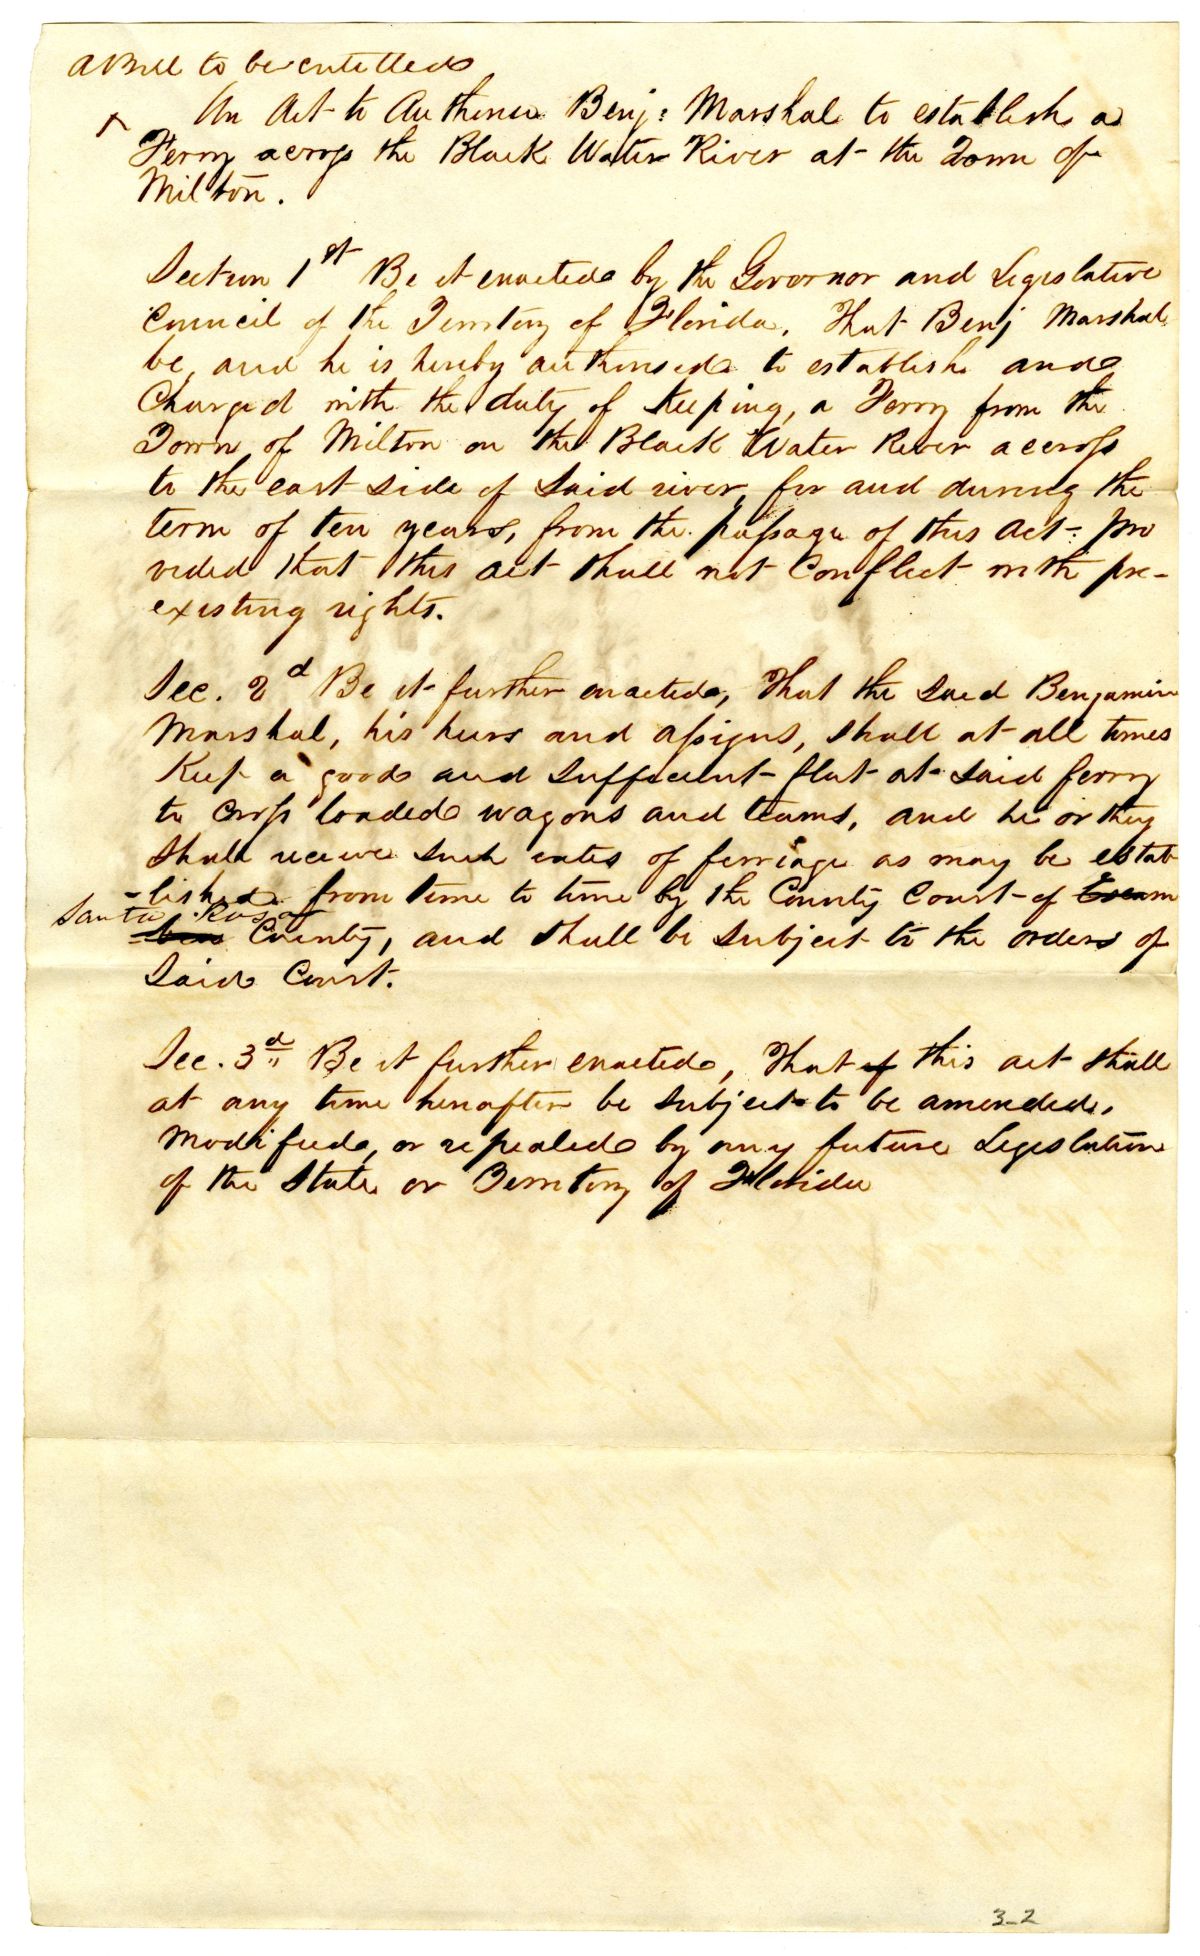 A Bill to be entitled
^ An Act to Authorise Benj: Marshal to establish a
Ferry across the Black Water River at the Town of
Milton.
Section 1st Be it enacted by the Governor and Legislative
Council of the Territory of Florida, That Benj Marshal
be, and he is hereby authorised to establish and
Charged with the duty of Keeping, a Ferry from the
Town of Milton on the Black Water River accross
to the east side of Said river, for and during the
term of ten years, from the passage of this Act: pro
vided that this act shall not Conflict with pre-
existing rights.
Sec. 2d Be it further enacted, That the Said Benjamin
Marshal, his heirs and assigns, shall at all times
Keep a good and Sufficient flat at said ferry
to Cross loaded wagons and teams, and he or they
Shall receive Such rates of ferriage as may be estab
-lished from time to time by the County Court of Escam
Santa Rosa
-bia County, and shall be Subject to the orders of
Said Court.
Sec. 3d Be it further enacted, That if this act shall
at any time hereafter be Subject to be amended,
Modified, or repealed by any future Legislation
of the State or Territory of Florida
3-2